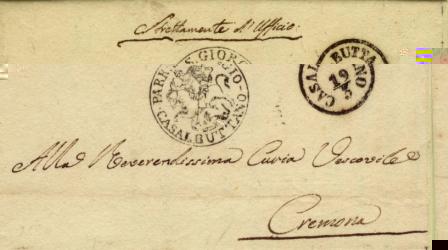 Strettamente d'Ufficio.
CASAL BUTTANO
19
3
PARR. S. GIORGIO
CASALBUTTANO
Alla Reverendissima Curia Vescovile
Cremona